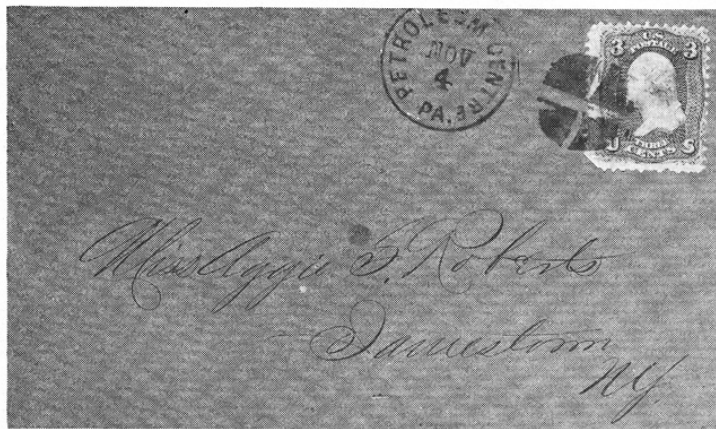 PETROLEUM CENTRE
NOV
4
PA.
3 U.S. 3
POSTAGE
U THREE S
CENTS
Miss Aggie S. Roberts
Jamestown
NY.